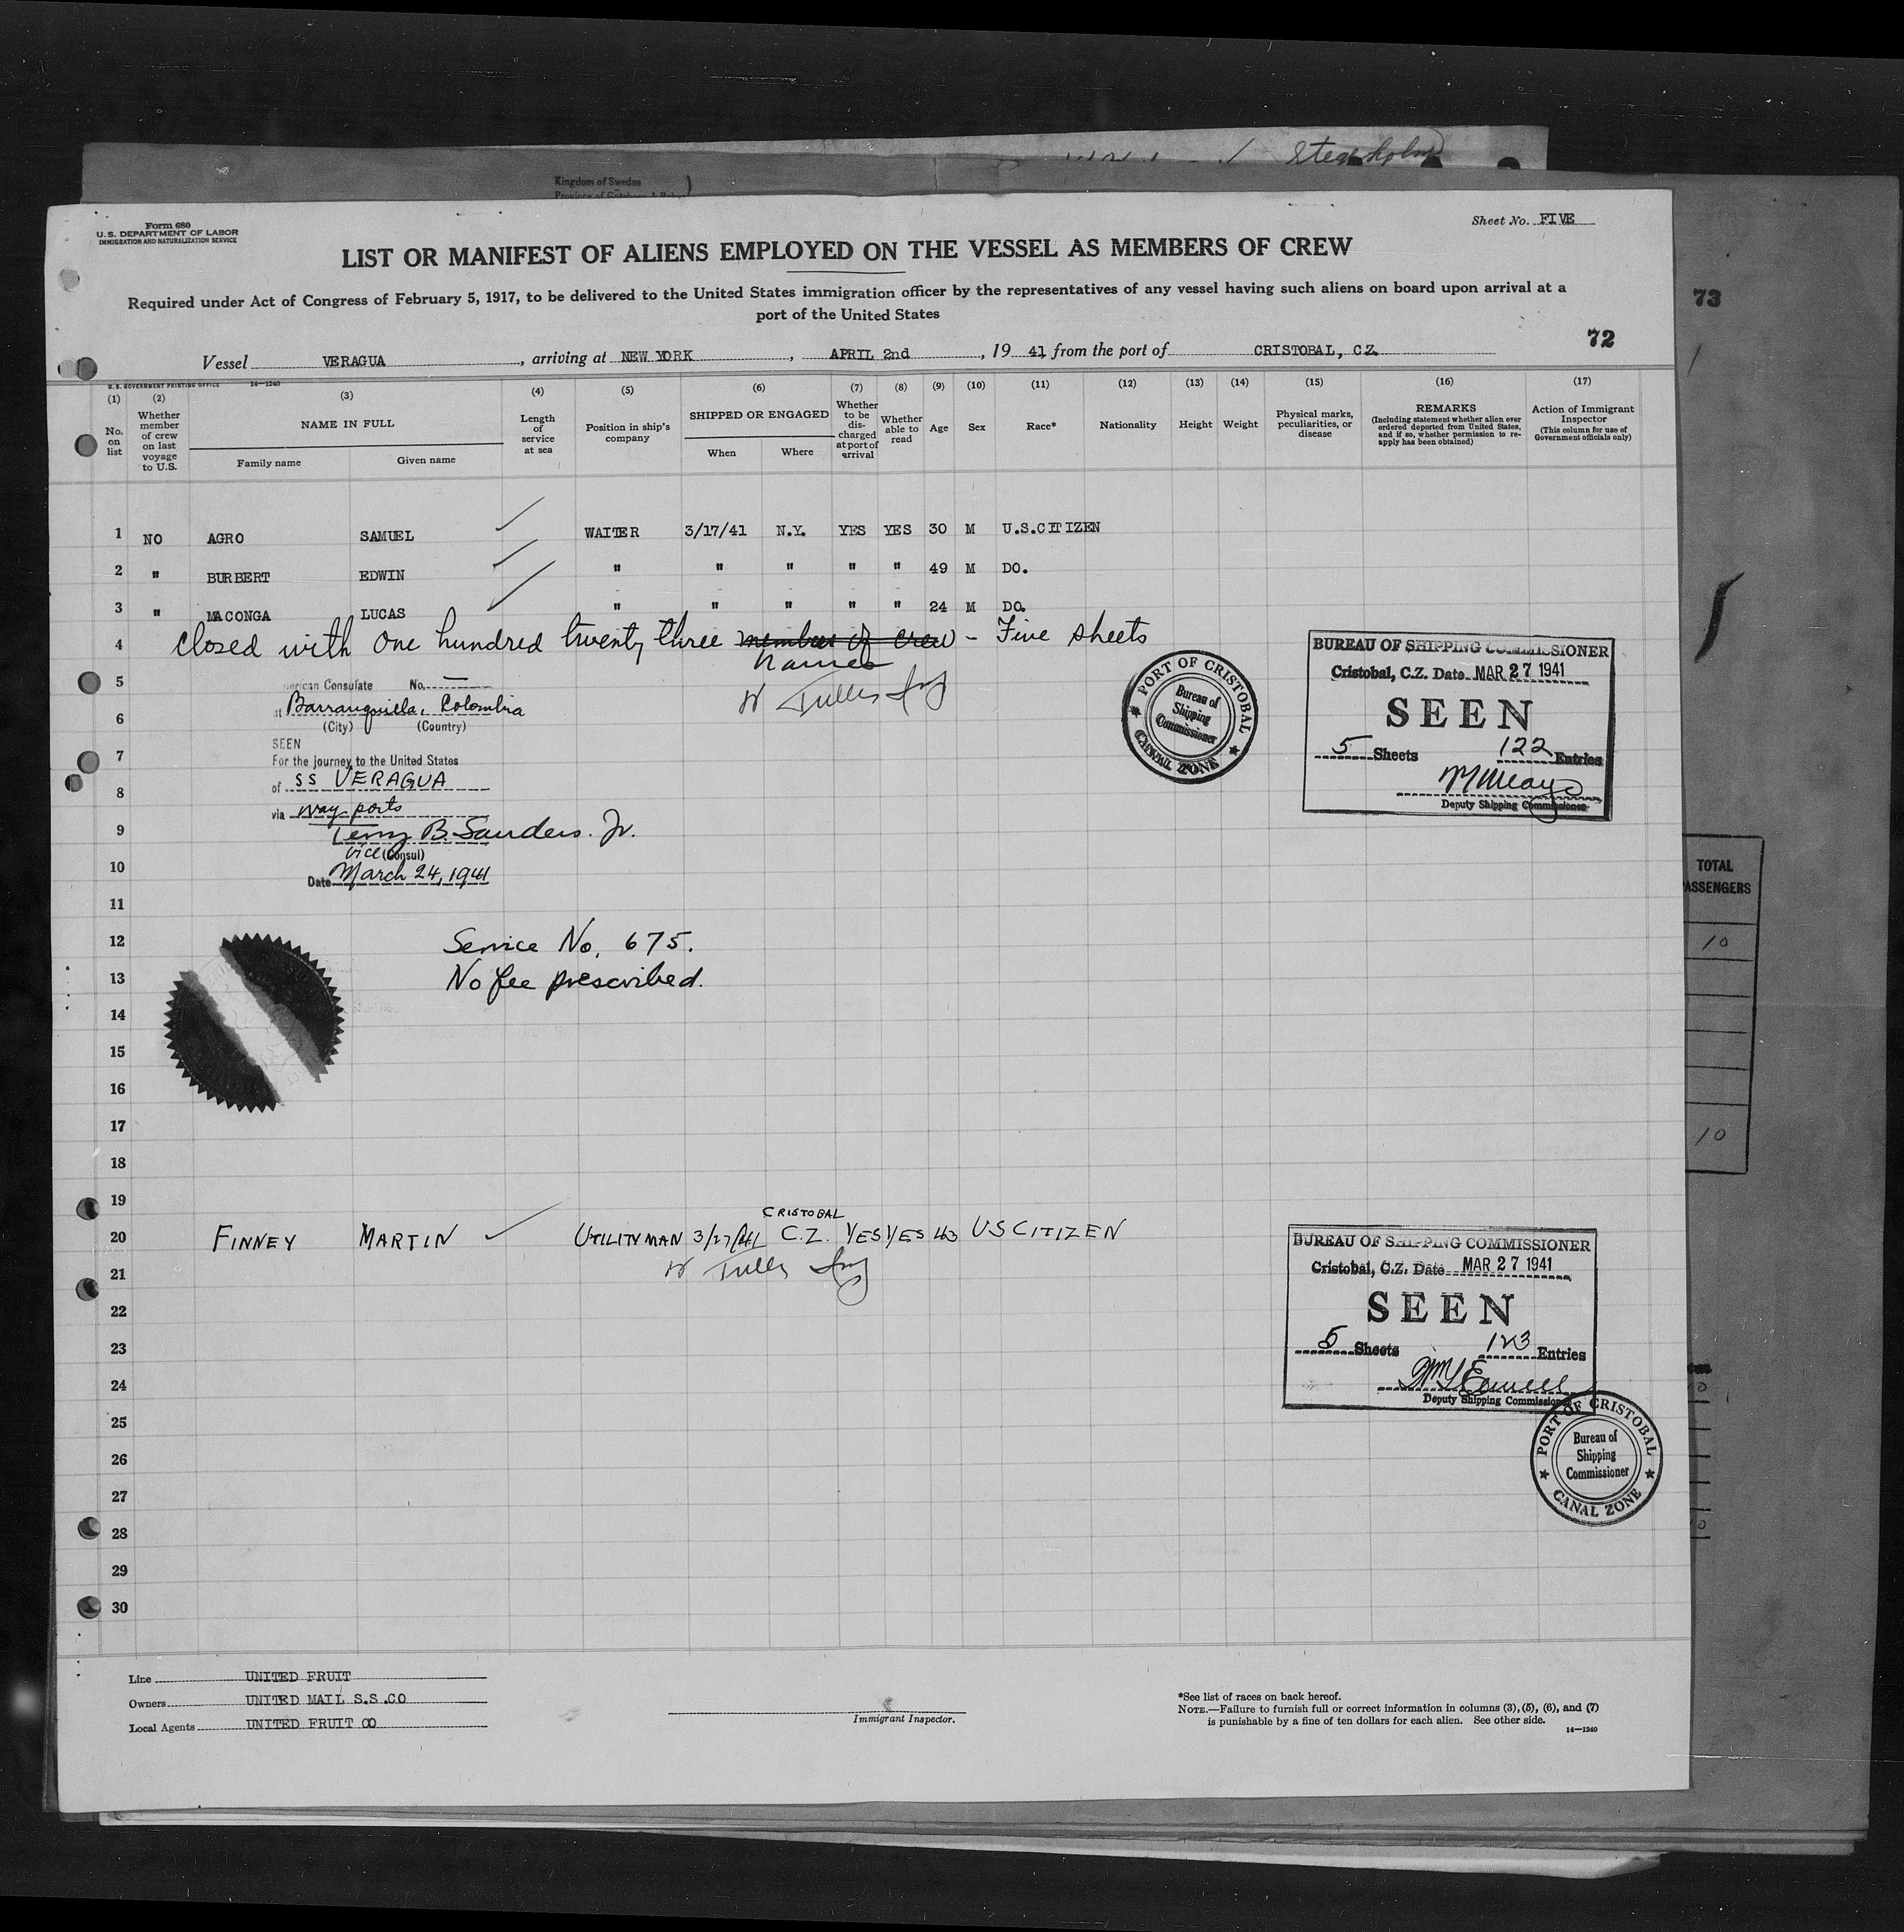 Stockholm
Kingdom of Sweden
Form 680
U.S. DEPARTMENT OF LABOR
IMMIGRATION AND NATURALIZATION SERVICE
Sheet No. FIVE
LIST OR MANIFEST OF ALIENS EMPLOYED ON THE VESSEL AS MEMBERS OF CREW
Required under Act of Congress of February 5, 1917, to be delivered to the United States immigration officer by the representatives of any vessel having such aliens on board upon arrival at a
port of the United States
73
72
Vessel VERAGUA, arriving at NEW YORK, APRIL 2nd, 1941 from the port of CRISTOBAL, CZ.
U.S. GOVERNMENT PRINTING OFFICE 14—1240
(1) No. on list
(2) Whether member of crew on last voyage to U.S.
(3) NAME IN FULL Family name Given name
(4) Length of service at sea
(5) Position in ship's company
(6) SHIPPED OR ENGAGED When Where
(7) Whether to be discharged at port of arrival
(8) Whether able to read
(9) Age
(10) Sex
(11) Race*
(12) Nationality
(13) Height
(14) Weight
(15) Physical marks, peculiarities, or disease
(16) REMARKS (Including statement whether alien ever ordered deported from United States, and if so, whether permission to reapply has been obtained)
(17) Action of Immigrant Inspector (This column for use of Government officials only)
1 NO AGRO SAMUEL WAITER 3/17/41 N.Y. YES YES 30 M U.S.CITIZEN
2 " BURBERT EDWIN " " " " " 49 M DO.
3 " MACONGA LUCAS " " " " " 24 M DO.
4 Closed with One hundred twenty three members of crew - Five sheets
names
5
American Consulate No. —
at Barranquilla, Colombia
6
(City) (Country)
SEEN
7
For the journey to the United States
of SS VERAGUA
8
via way ports
9
Terry B. Sanders. Jr.
vice (Consul)
10
Date March 24, 1941
11
BUREAU OF SHIPPING COMMISSIONER
Cristobal, C.Z. Date MAR 27 1941
SEEN
5 Sheets 122 Entries
Deputy Shipping Commissioner
PORT OF CRISTOBAL
Bureau of
Shipping
Commissioner
CANAL ZONE
12 Service No. 675.
13 No fee prescribed.
14
15
16
17
18
19
CRISTOBAL
20 FINNEY MARTIN UTILITYMAN 3/27/41 C.Z. YES YES 43 US CITIZEN
21
22
23
24
25
26
27
28
29
30
BUREAU OF SHIPPING COMMISSIONER
Cristobal, C.Z. Date MAR 27 1941
SEEN
5 Sheets 123 Entries
Deputy Shipping Commissioner
PORT OF CRISTOBAL
Bureau of
Shipping
Commissioner
CANAL ZONE
TOTAL
PASSENGERS
10
10
Line UNITED FRUIT
Owners UNITED MAIL S.S.CO
Local Agents UNITED FRUIT CO
Immigrant Inspector.
*See list of races on back hereof.
NOTE.—Failure to furnish full or correct information in columns (3), (5), (6), and (7)
is punishable by a fine of ten dollars for each alien. See other side.
14—1240